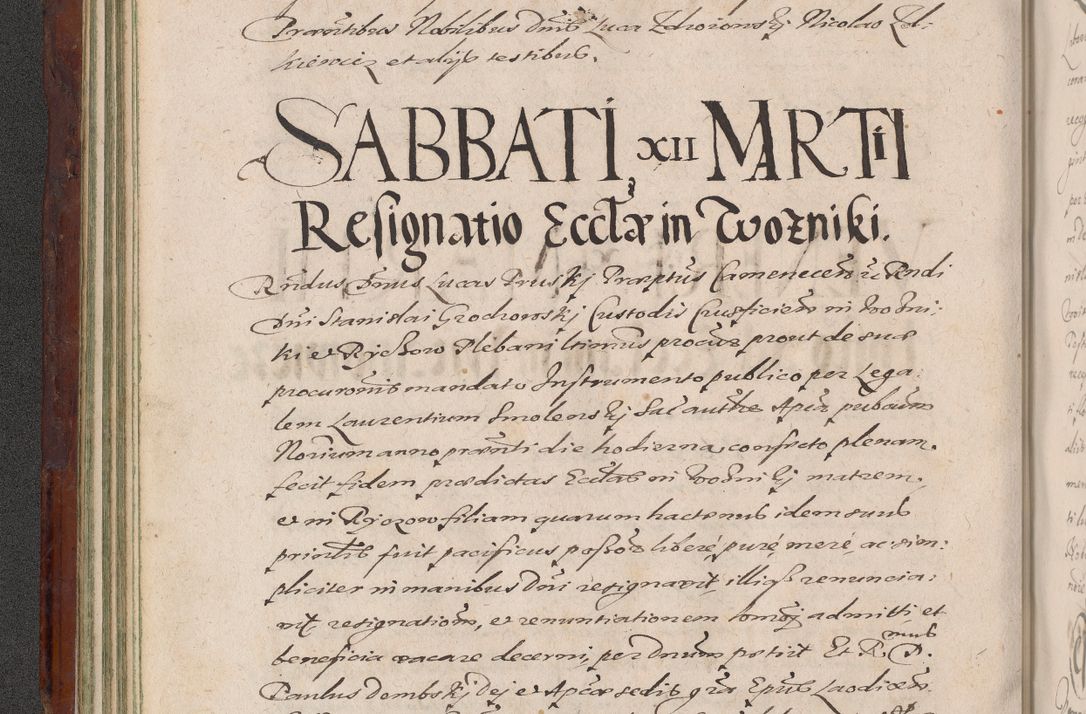 Præntibus Nobilibus Dnis Luca Zdroiowskj Nicolao Zel-
kiewicz et alijs testibus.
SABBATI, XII MARTII
Resignatio Ecclæ in Twozniki.
Rndus Dnus Lucas Pruskj Præptus Camenecen
Dni Stanislai Grochowskj Custodis Crusficien in
ki et Ryczow Plebani ltimus procur prout de suæ
procuronis mandato Instrumento publico per Lega:
lem Laurentium Smolenskj Sac authte Aplca pubcum
Norium anno prænti die hodierna confecto plenam
fecit fidem prædictas Ecclas in matrem,
et in Ryczow filiam quarum hactenus idem suus
prinlis fuit pacificus possor liberé puré meré, ac sim:
pliciter in manibus Dni resignavit, illisqs renuncia:
vit resignationem, et renuntiationem admitti, et
beneficia vacare decerni, per Dnum petiit Et R. mus D.
Paulus Dembskj Dej et Aplcæ sedis gra Epus Laodicen